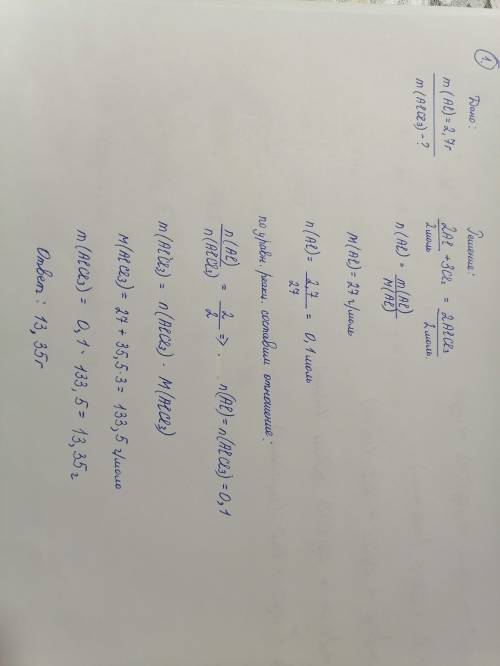 1.
Дано:
m(Al) = 2,7г
m(AlCl₃) - ?
Решение:
2Al + 3Cl₂ = 2AlCl₃
2моль 2моль.
n(Al) = m(Al)/M(Al)
M(Al) = 27 г/моль
n(Al) = 2,7/27 = 0,1 моль
по уравн. реакц. составим отношение:
n(Al)/n(AlCl₃) = 2/2 => n(Al) = n(AlCl₃) = 0,1
m(AlCl₃) = n(AlCl₃) · M(AlCl₃)
M(AlCl₃) = 27 + 35,5·3 = 133,5 г/моль
m(AlCl₃) = 0,1 · 133,5 = 13,35 г
Ответ: 13,35г